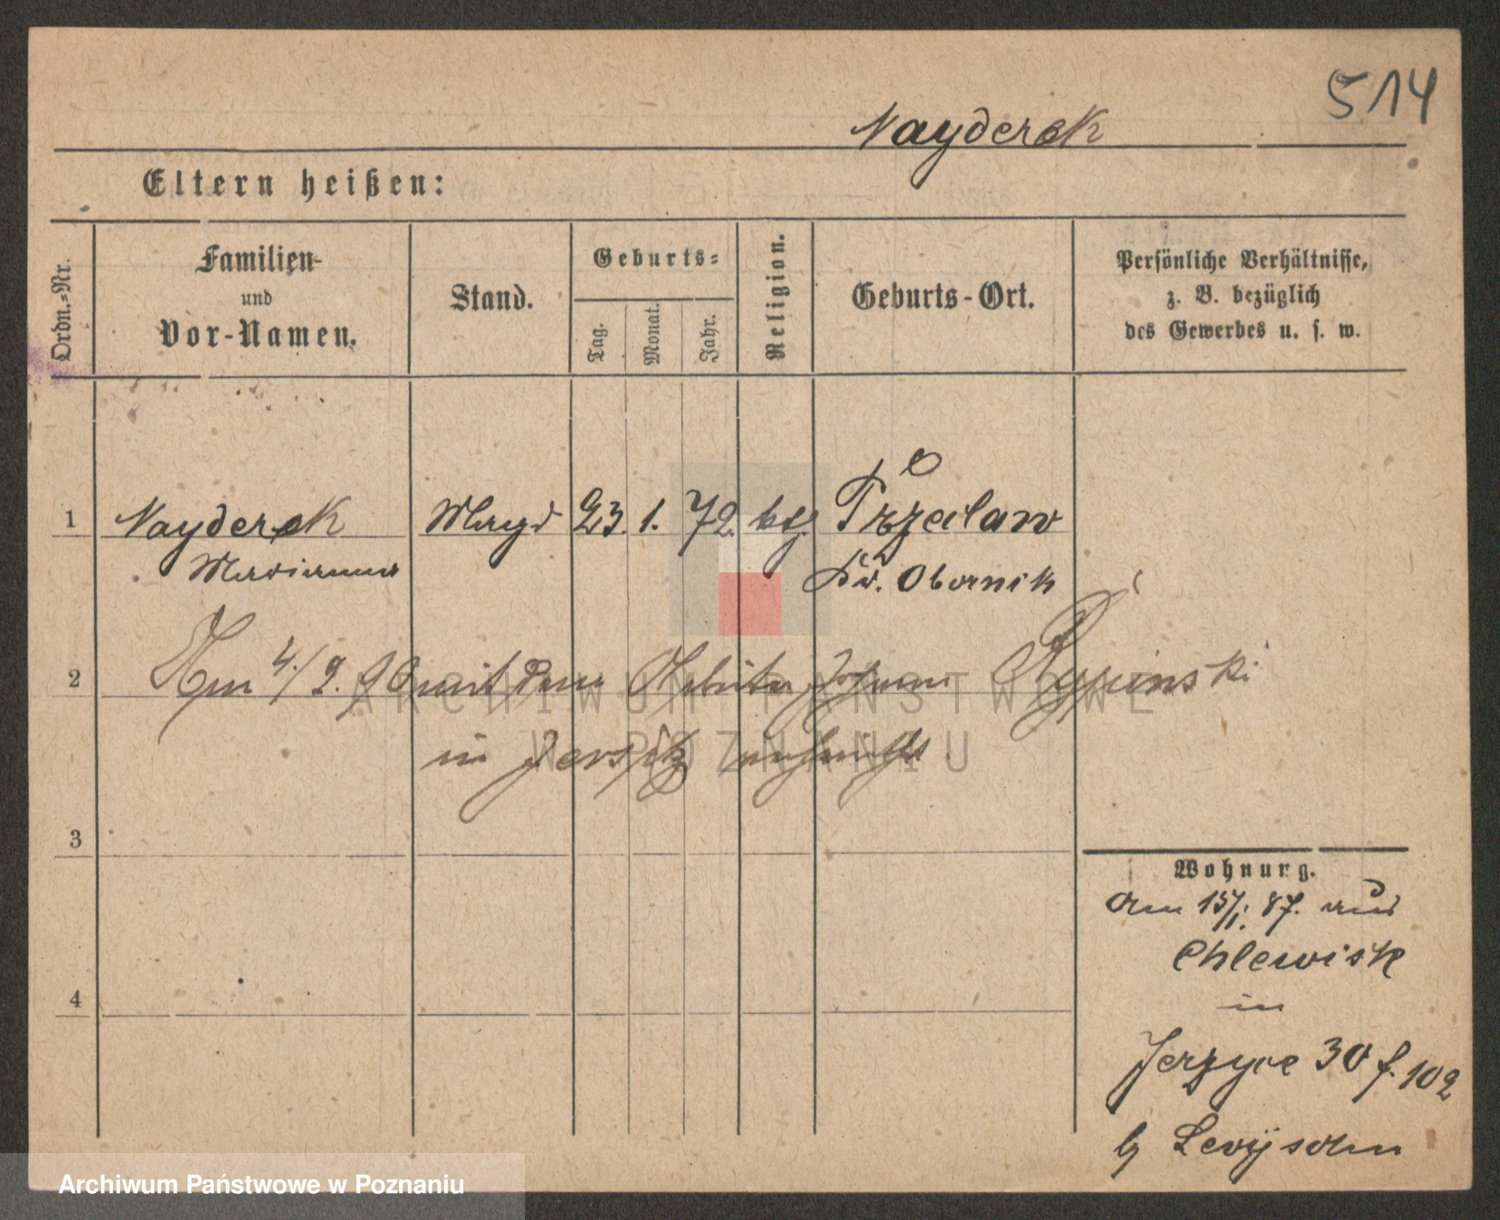 514
Nayderek
Eltern heißen:
Ordn.-Nr.
Familien-
und
Vor-Namen.
Stand.
Geburts-
Tag.
Monat.
Jahr.
Religion.
Geburts-Ort.
Persönliche Verhältnisse,
z. B. bezüglich
des Gewerbes u. s. w.
1 Nayderek Magd 23. 1. 72. ktg. Trzelaw
Marianna Kr. Obornik
2 Am 4./9. 90 mit dem Arbeiter Johann Rypinski
in Jersitz verheir.
3
4
Wohnung.
Am 15/1. 87. aus
Chlewisk
in
Jerzyce 30 f. 102
b/ Levysohn
ARCHIWUM PAŃSTWOWE
W POZNANIU
Archiwum Państwowe w Poznaniu